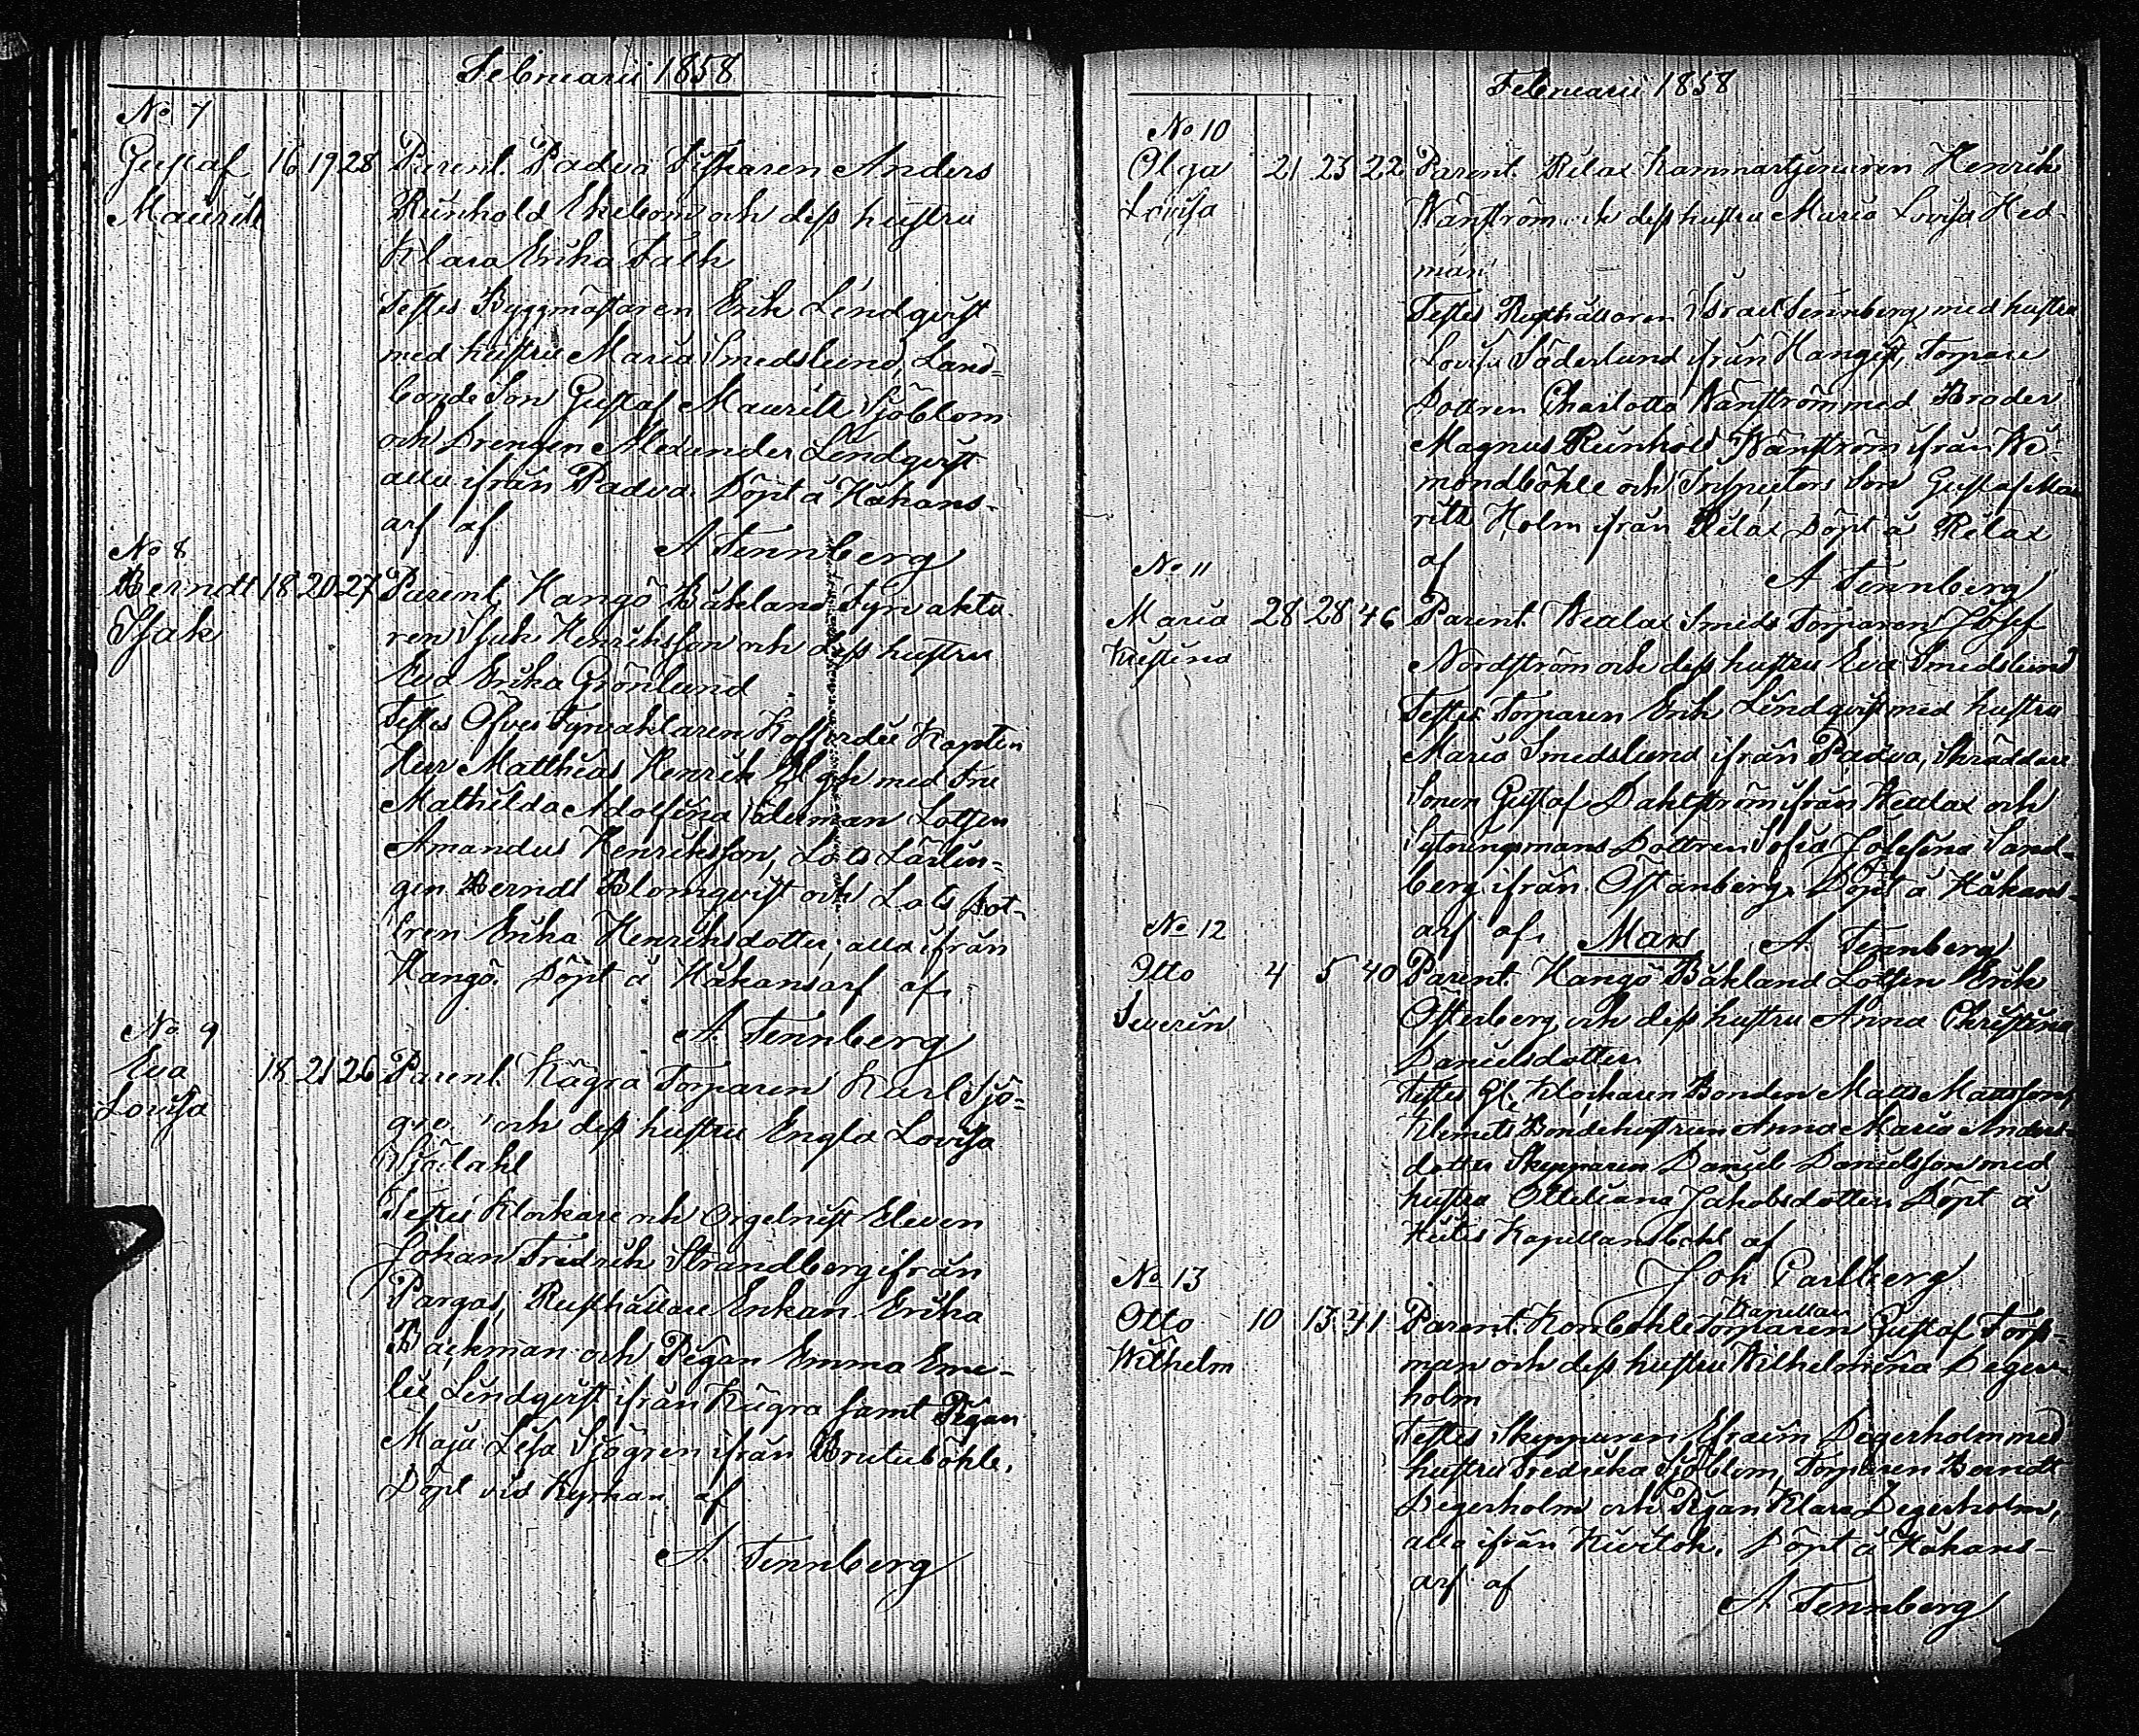 Februarii 1858
No 7
Gustaf 16 19 28 Parent. Padva Fiskaren Anders
Maurits Reinhold Ekebom och dess hustru
Klara Erika Fälth
Testes Byggmästaren Erik Lindqvist
med hustru Maria Smedslund, Land-
bonde Son Gustaf Maurits Sjöblom
och Drengen Alexander Lindqvist
alla ifrån Padva. Döpt å Håkans-
arf af
A Tennberg
No 8
Berndt 18 20 27 Parent. Hangö Båkland Fyrvakta-
Isak ren Isak Henriksson och dess hustru
Eva Erika Grönlund
Testes Öfver Fyrvaktaren Kofferdie Kapten
Herr Matthias Henrik med Fru
Mathilda Adolfina Lotsen
Amandus Henriksson, Lots Lärlin-
gen Berndt Blomqvist och Lots Dot-
tren Erika Henriksdotter, alla ifrån
Hangö. Döpt å Håkansarf af
A. Tennberg
No 9
Eva 18 21 26 Parent. Kägra Torparen Karl Sjö-
Lovisa och dess hustru Engla Lovisa
Sjödahl
Testes Klockare och Orgelnist Eleven
Johan Fredrik Strandberg ifrån
Pargas, Rusthållare Enkan Erika
Bäckman och Pigan Emma Eme-
lie Lindqvist ifrån Kägra samt Pigan
Maja Lisa Sjögren ifrån Bruteböhle.
Döpt vid Kyrkan af
A. Tennberg
Februarii 1858
No 10
Olga 21 23 22 Parent. Rilax Kammartjenaren Henrik
Lovisa Wänström och dess hustru Maria Lovisa Hed-
man
Testes Rusthållaren Israel Tennberg med hustru
Lovisa Söderlund ifrån Hangist, Torpare
Dottren Charlotta Wänström med Broder
Magnus Reinhold Wänström ifrån We-
mondböhle och Inspectors Son Gustaf Mau
ritz Holm ifrån Rilax Döpt å Rilax
af
A Tennberg
No 11
Maria 28 28 46 Parent. Wättlax Smids Torparen Josef
Kristina Nordström och dess hustru Eva Smedslund
Testes Torparen Erik Lindqvist med hustru
Maria Smedslund ifrån Padva, Skräddare
Sonen Gustaf Dahlström ifrån Wättlax och
Sytningsmans Dottren Sofia Josefina Sand-
berg ifrån Östanberg. Döpt å Håkans-
arf af
Mars
A. Tennberg
No 12
Otto 4 5 40 Parent. Hangö Båkland Lotsen Erik
Severin Österberg och dess hustru Anna Christina
Danielsdotter
Testes Gl. Klockaren Bonden Matts Mattsson,
Klemets Bondehustrun Anna Maria Anders-
dotter Skepparen Daniel Danielsson med
hustru Otteliana Jakobsdotter Döpt å
Kapellansbohl af
Joh Carlberg
No 13
Kapellan
Otto 10 13 41 Parent. Konböhle Torparen Gustaf Forss-
Wilhelm man och dess hustru Wilhelmina Deger-
holm
Testes Skepparen Efraim Degerholm med
hustru Fredrika Sjöblom, Torparen Berndt
Degerholm och Pigan Klara Degerholm,
alla ifrån Kivitok. Döpt å Håkans-
arf af
A. Tennberg